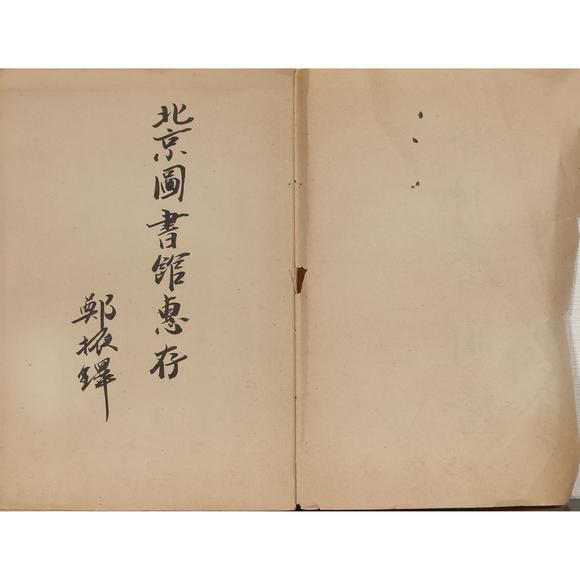 北京圖書館惠存
鄭振鐸